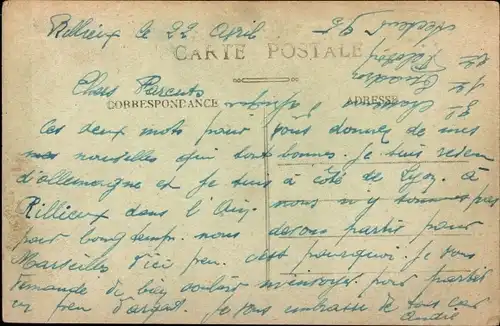 Rillieux le 22 Avril
CARTE POSTALE
Chers Parents
CORRESPONDANCE
ADRESSE
Ces deux mots pour vous donner de mes
mes nouvelles qui sont bonnes. Je suis
d'allemagne et je suis à côté de Lyon. à
Rillieux dans l'Ain. nous n'y sommes pas
pour longtemp. nous devons partir pour
Marseilles d'ici peu. c'est pourquoi je vous
demande de bien vouloir m'envoyer pour partir
un peu d'argent. Je vous embrasse de tous cœur
André